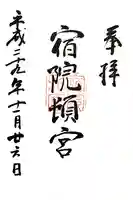 奉拝
宿院頓宮
平成二十九年十二月廿六日